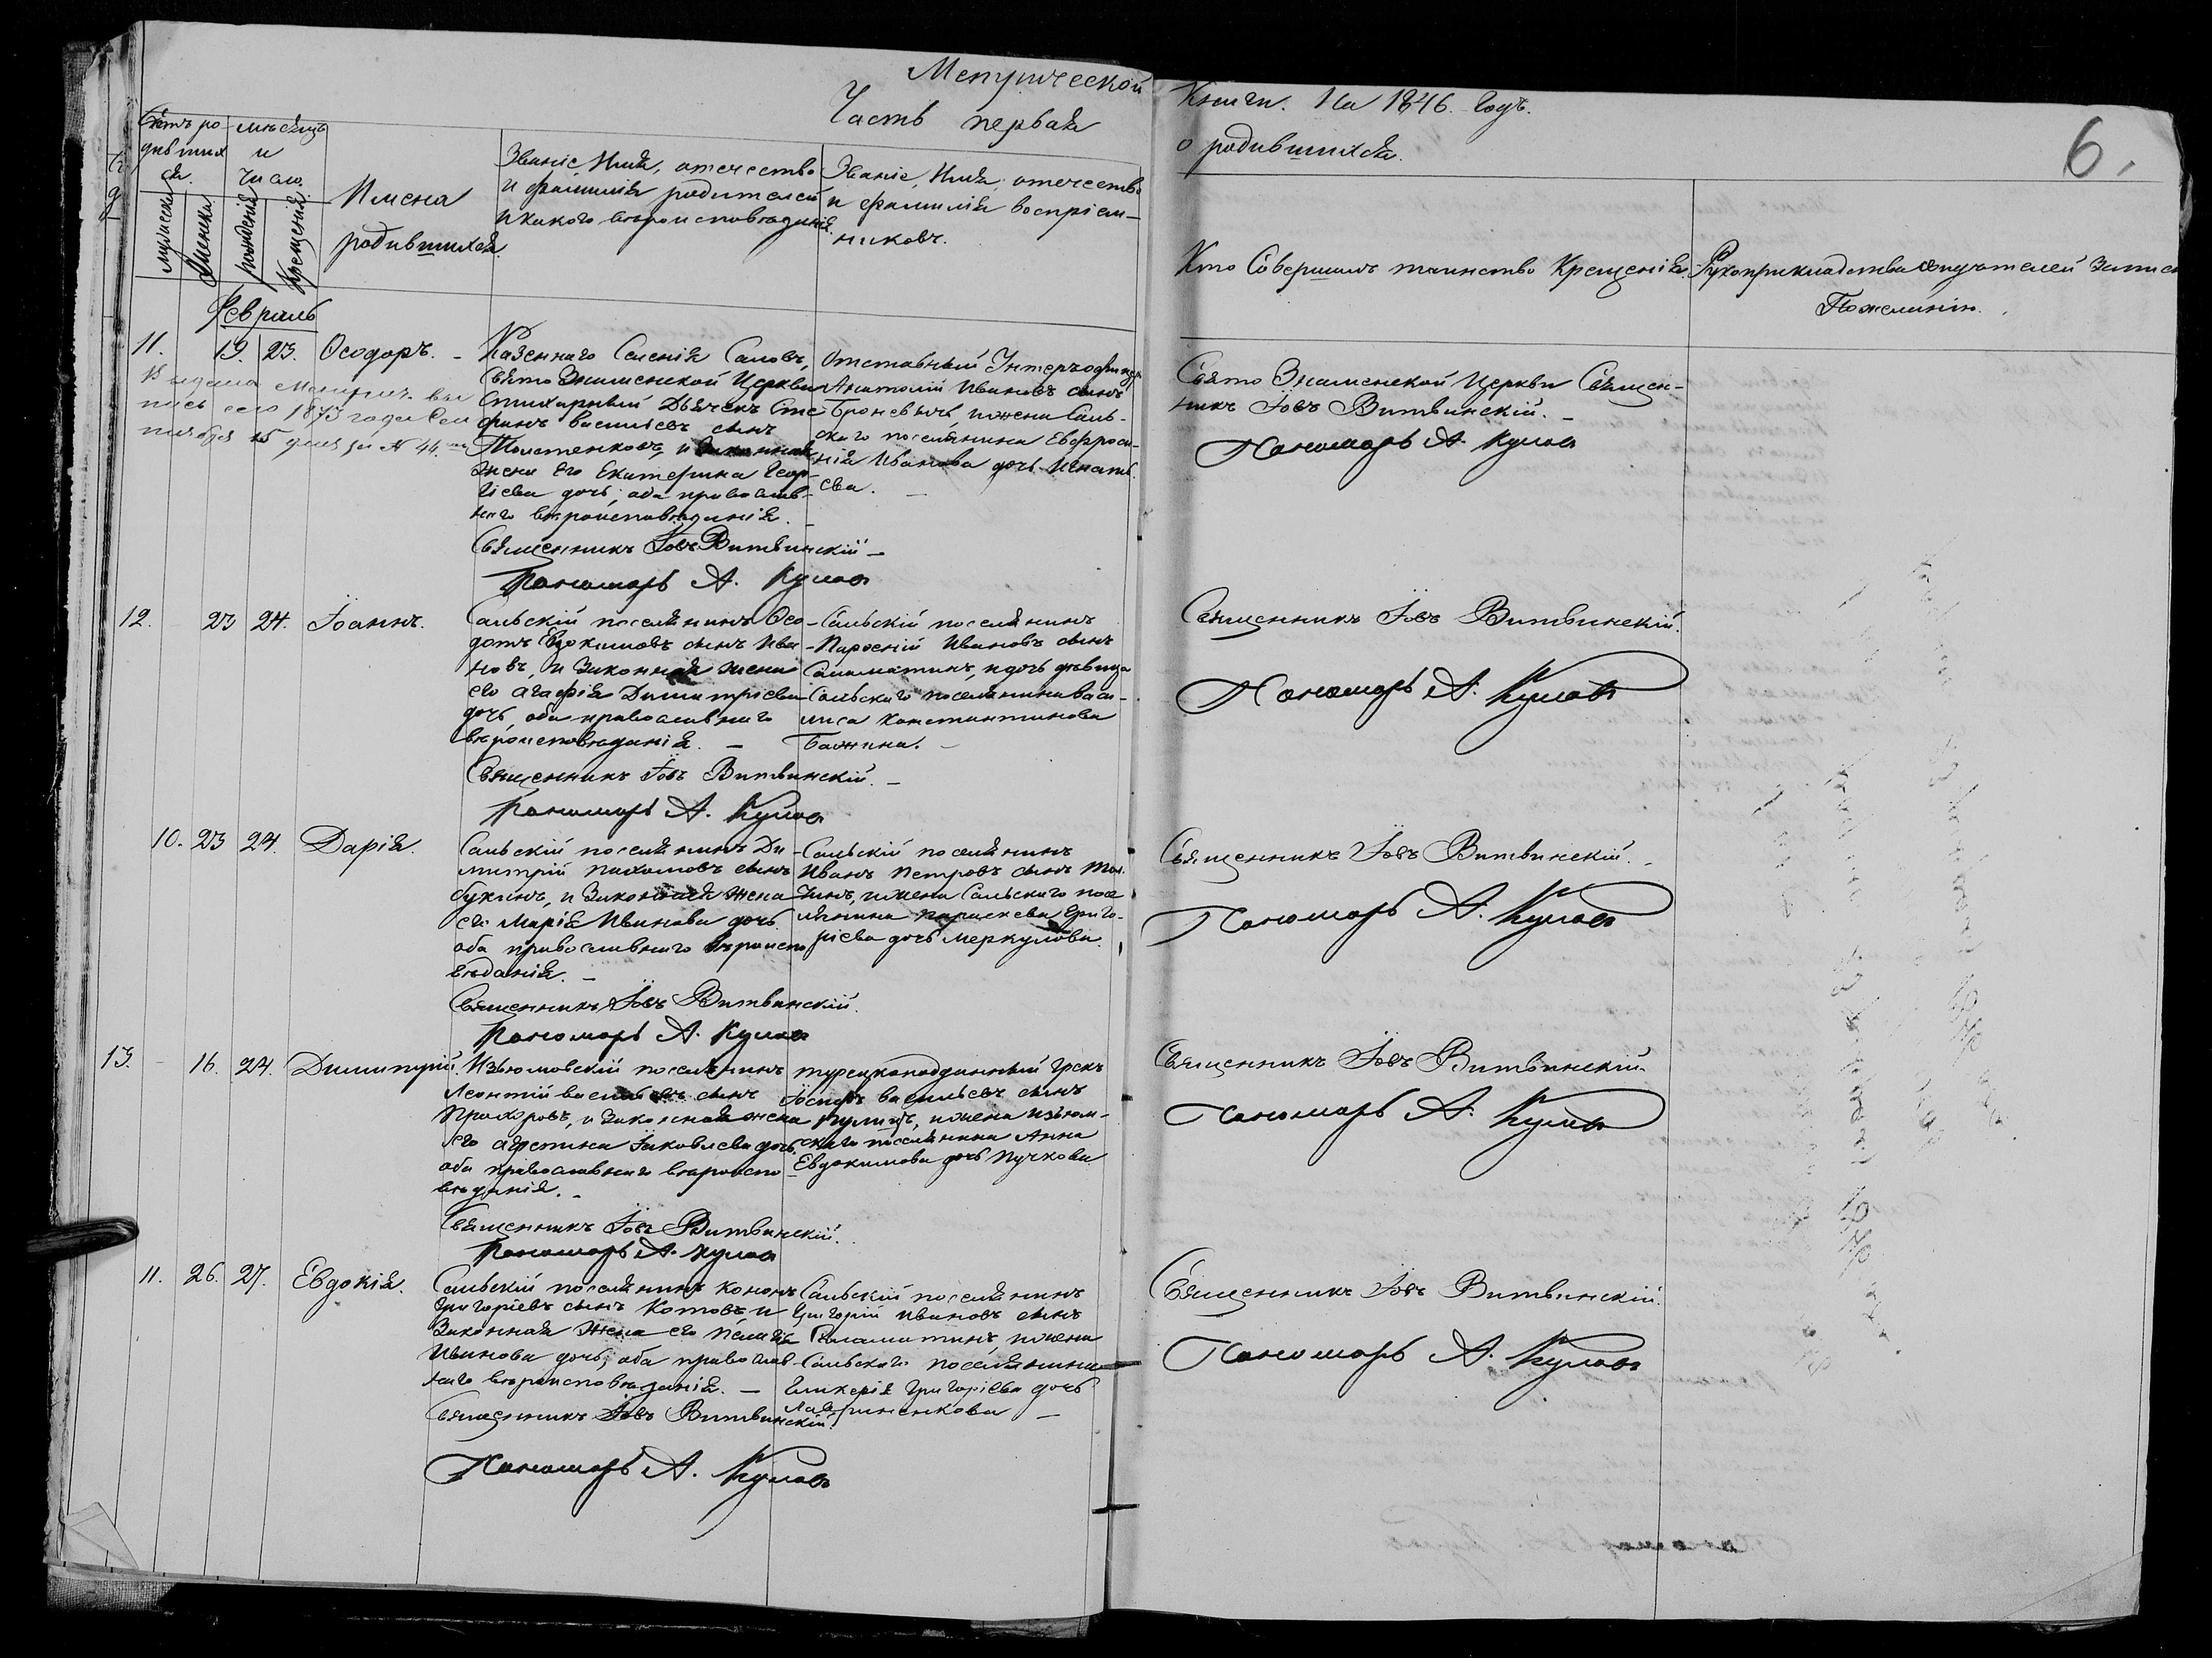 Метрической
Книги. На 1846. Годъ.
Часть первая
о родившихся.
6.
Счетъ родившихся.
мѣсяцъ и число.
мужеска
женска
рожденія
Крещенія
Имена
родившихся.
Званіе, Имя, отечество
и фамилія родителей
и какого вѣроисповѣданія.
Званіе, Имя, отечество
и фамилія воспріем-
никовъ.
Кто Совершалъ таинство Крещенія.
Рукоприкладство свидѣтелей записи
По желанію.
Февраль
11. 19. 23. Ѳеодоръ. -
Выдана Метрич. вы
пись сего 1873 года Сен
тября 15 дня за № 44.
Казеннаго Селенія Саловъ,
Свято Знаменской Церкви
Стихарный Дьячекъ Сте
фанъ Васильевъ сынъ
и Законная
жена Его Екатерина Геор-
гіева дочь; оба православ-
наго вѣроисповѣданія.
Священникъ Іовъ Витвинскій
Пономарь А. Кулов
Отставный Унтеръофицеръ
Анатолій Ивановъ сынъ
Броневичъ, и жена Саль-
скаго поселянина Евфроси-
нія Иванова дочь Игнать-
ева.
Свято Знаменской Церкви Священ-
никъ Іовъ Витвинскій.
Пономарь А. Кулов
12. 23 24. Іоаннъ.
Сальскій поселянинъ Ѳео-
дотъ Евдокимовъ сынъ Ива
новъ, и Законная жена
его Агафія Димитріева
дочь, оба православнаго
вѣроисповѣданія.
Священникъ Іовъ Витвинскій.
Пономарь А. Кулов
Сальскій поселянинъ
Ивановъ сынъ
Саламатинъ, и дочь дѣвица
Сальскаго поселянина Васи-
лиса Константинова
Бажина.
Священникъ Іовъ Витвинскій.
Пономарь А. Кулов
10. 23 24. Дарія.
Сальскій поселянинъ Ди
митрій Пахомовъ сынъ
и Законная жена
его Марія Иванова дочь
оба православнаго вѣроиспо
вѣданія.
Священникъ Іовъ Витвинскій.
Пономарь А. Кулов
Сальскій поселянинъ
Иванъ Петровъ сынъ
и жена Сальскаго посе
лянина Параскева Григо-
ріева дочь Меркулова.
Священникъ Іовъ Витвинскій.
Пономарь А. Кулов
13. 16. 24. Димитрій.
Изюмовскій поселянинъ
Леонтій Васильевъ сынъ
Прохоровъ, и Законная жена
его Агрепина Іаковлева дочь
оба православнаго вѣроиспо
вѣданія.
Священникъ Іовъ Витвинскій.
Пономарь А. Кулов
турецкоподданный Грекъ
Іосифъ Васильевъ сынъ
и жена Изюм-
скаго поселянина Анна
Евдокимова дочь Пучкова
Священникъ Іовъ Витвинскій.
Пономарь А. Кулов
11. 26. 27. Евдокія.
Сальскій поселянинъ Кононъ
Григоріевъ сынъ Котовъ и
Законная Жена его Пелагія
Иванова дочь; оба православ-
наго вѣроисповѣданія.
Священникъ Іовъ Витвинскій.
Пономарь А. Кулов
Сальскій поселянинъ
Григорій Ивановъ сынъ
Саламатинъ, и жена
Сальскаго поселянина
Гликерія Григоріева дочь
Лавриненкова
Священникъ Іовъ Витвинскій.
Пономарь А. Кулов